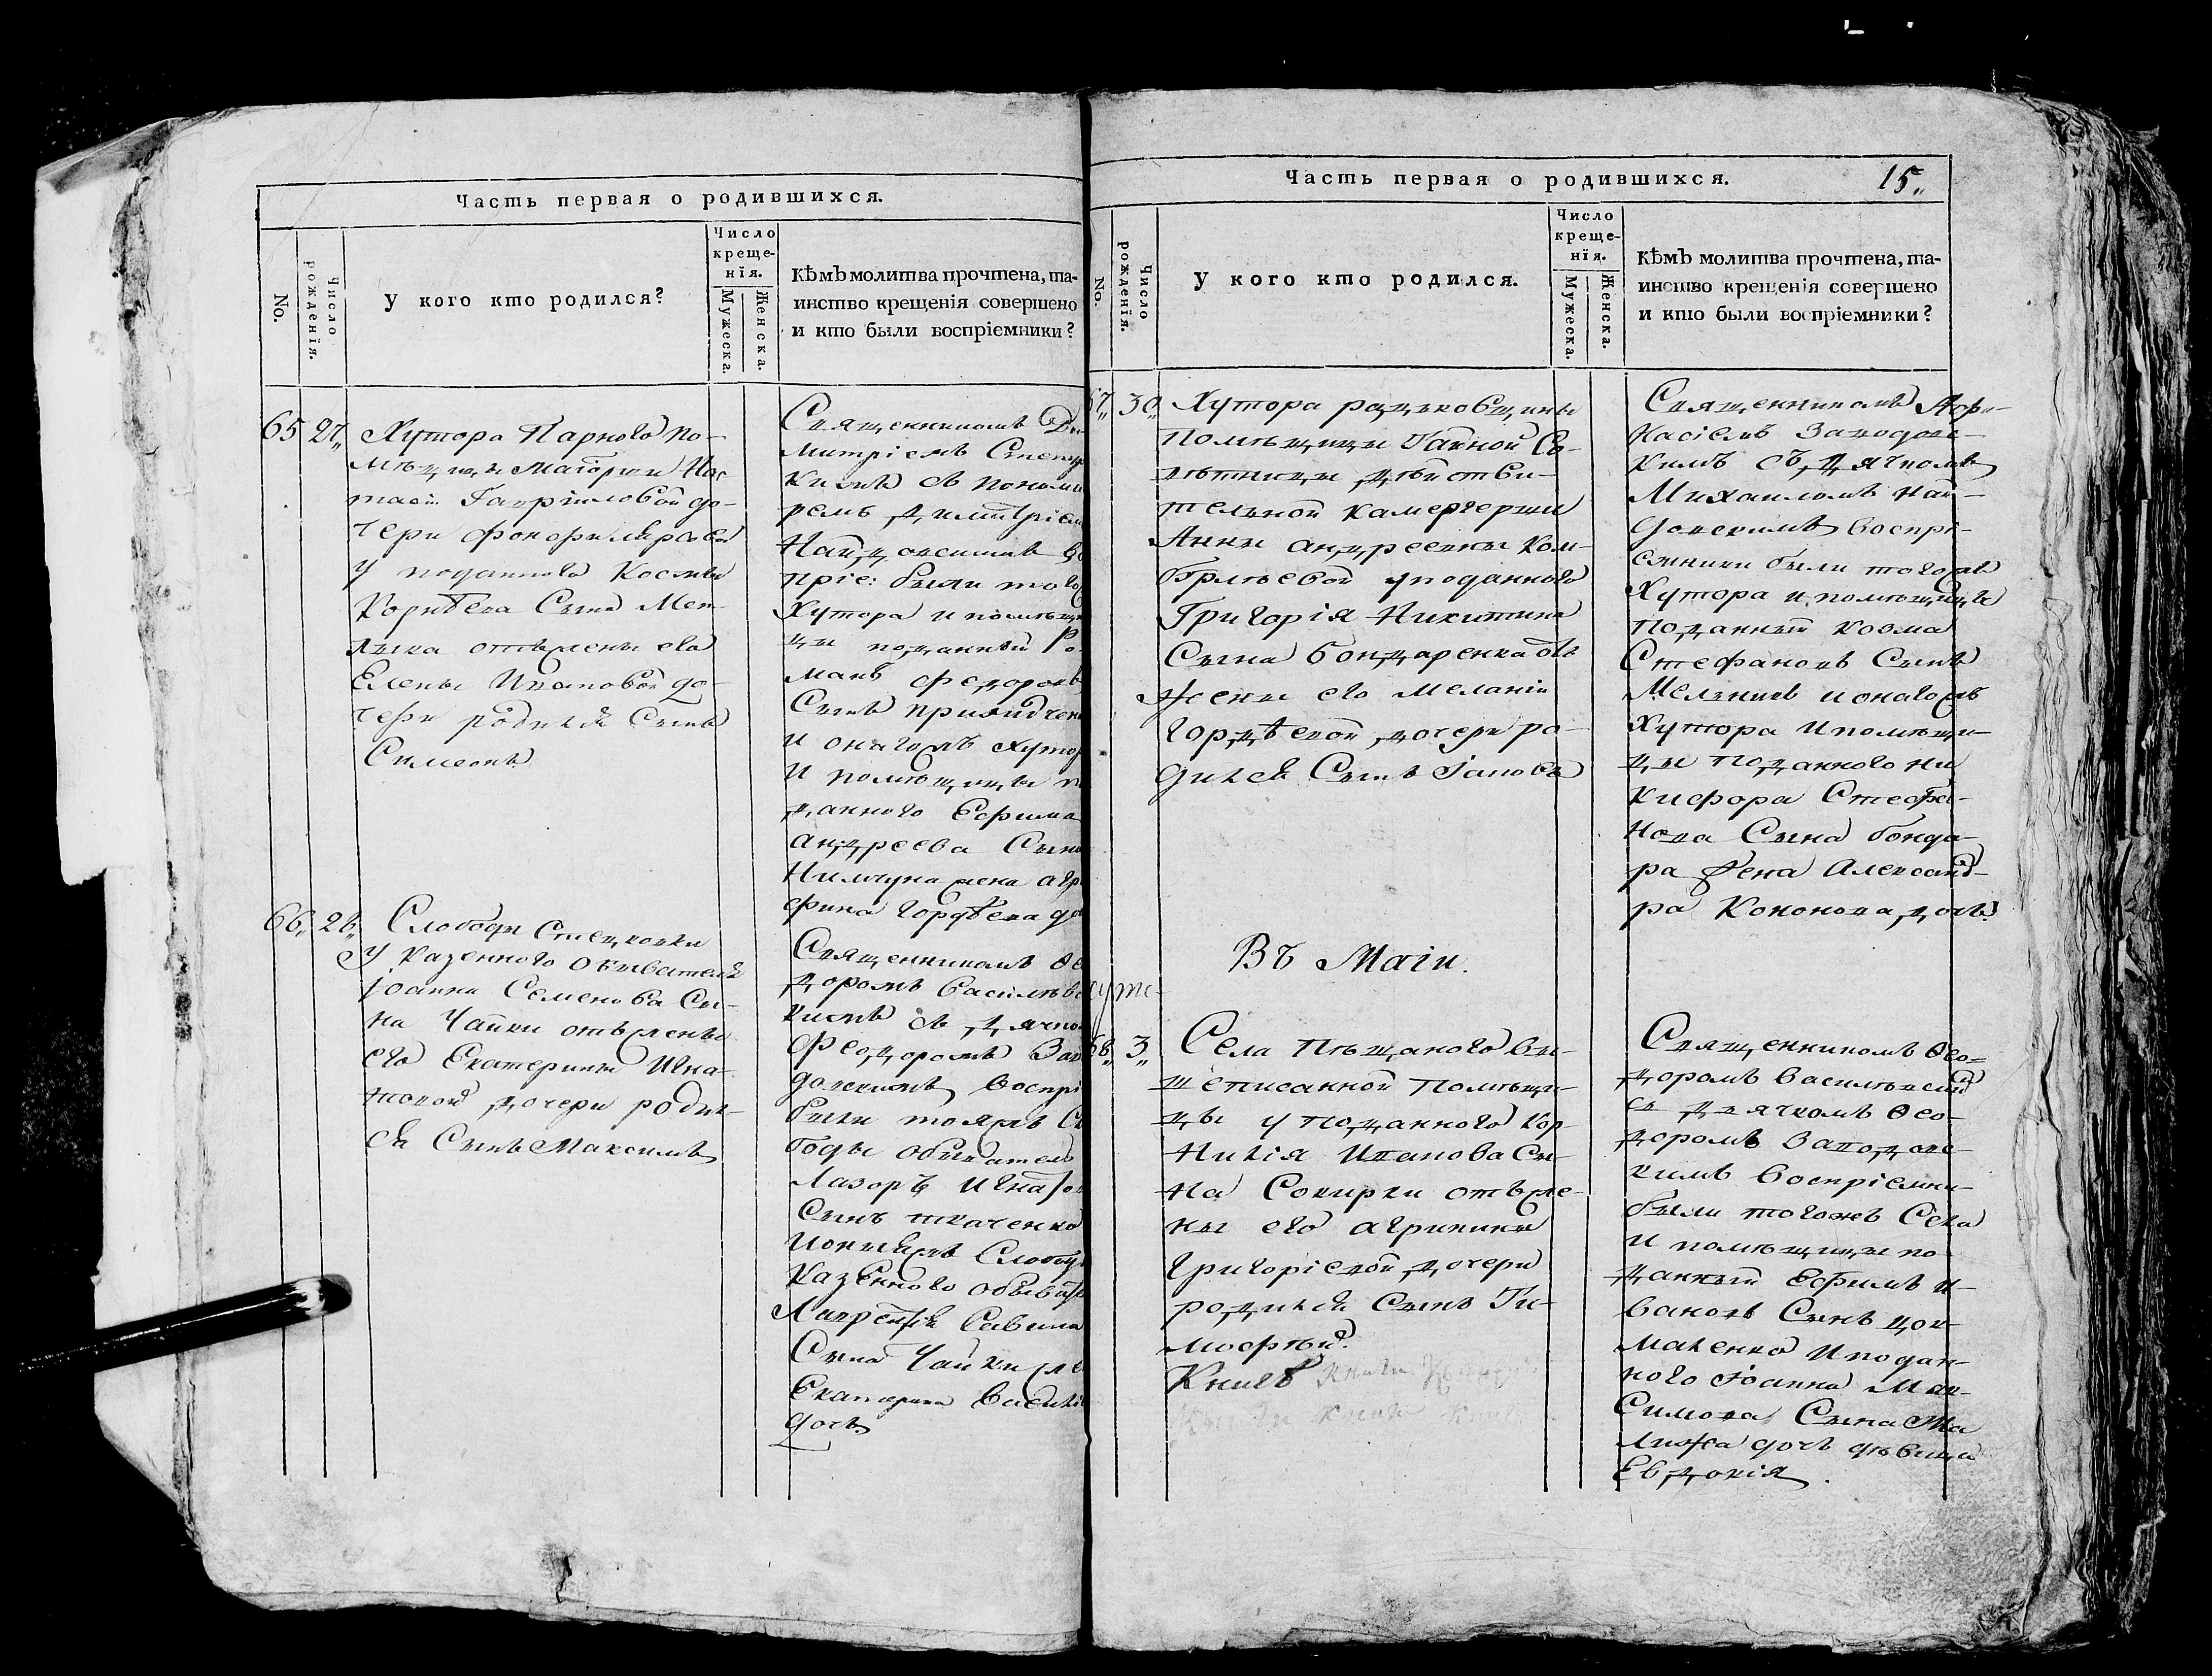 Часть первая о родившихся.
No.
Число рожденія.
У кого кто родился?
Число
креще-
нія.
Мужеска.
Женска.
Кѣмъ молитва прочтена, та-
инство крещенія совершено
и кто были воспріемники?
65 27„
Хутора Парного по-
мѣщицы маіорши
Гавріиловой до-
чери
у подданного Космы
Корнѣева Сына
отъ жены его
Елены Ивановой до-
чери родился Сынъ
Симеонъ
Священникомъ Ди-
митріемъ
кимъ съ понома
ремъ Димитріем
Найдовскимъ во
пріе: были того
Хутора и помѣщи
цы подданный Ро-
манъ Федоровъ
Сынъ
и оногожъ хутор
и помѣщицы по
данного Ефима
андреева Сына
жена агри
фина Гордѣева до
66„ 28„
Слободы Стецковки
У казенного обывателя
іоанна Семенова Сы-
на Чайки отъ жены
его Екатерины Игна-
товой дочери родил-
ся Сынъ Максимъ
Священникомъ Ѳе
доромъ Василѣвс
кимъ съ дячко
Феодоромъ Зап
долскимъ воспрі
были тояжъ Сл
боды обыватель
Лазоръ Игнатов
Сынъ ткаченко
и онияжъ Слободы
казенного обыват
Лаврентія Савина
Сына Чайки же
Екатерина Василі
дочь
Часть первая о родившихся.
15„
No.
Число рожденія.
У кого кто родился.
Число
креще-
нія.
Мужеска.
Женска.
Кѣмъ молитва прочтена, та-
инство крещенія совершено
и кто были воспріемники?
67„ 30„
Хутора радьковщины
помѣщицы Тайной Со-
вѣтницы дѣйстви-
тельной камергерши
Анны андреевны Ком-
бурлѣевой у поданного
Григорія Никитина
Сына бондаренка отъ
жены его меланіи
Гордѣевой дочери ро-
дился Сынъ Іаковъ
Священникомъ Афа-
насіемъ Заподол-
кимъ съ дячкомъ
Михаиломъ Най-
довскимъ воспрі-
емники были тогожъ
Хутора и помѣщицы
подданный Козма
Стефановъ Сынъ
Мелникъ и оногожъ
Хутора и помѣщи-
цы подданного Ни
кифора Стефа-
нова Сына бонда-
ра жена Александ-
ра Кононова дочь
Въ Маіи.
68„ 3„
Села Пѣщаного вы-
шеписанной помѣщи-
цы у подданного Кор-
нилія Иванова Сы-
на Сокирки отъ же-
ны его агрипины
Григоріевой дочери
родился Сынъ Ти-
мофѣй
Книгъ книги
книги
Священникомъ Ѳео-
доромъ василѣвский
съ дьячкомъ Ѳео-
доромъ Заподолс-
кимъ воспріемни-
были тогожъ Села
и помѣщицы по-
данный Ефимъ И-
вановъ Сынъ
и подан-
ного Іоанна Мак-
симова Сына
дочь дѣвица
Евдокія.